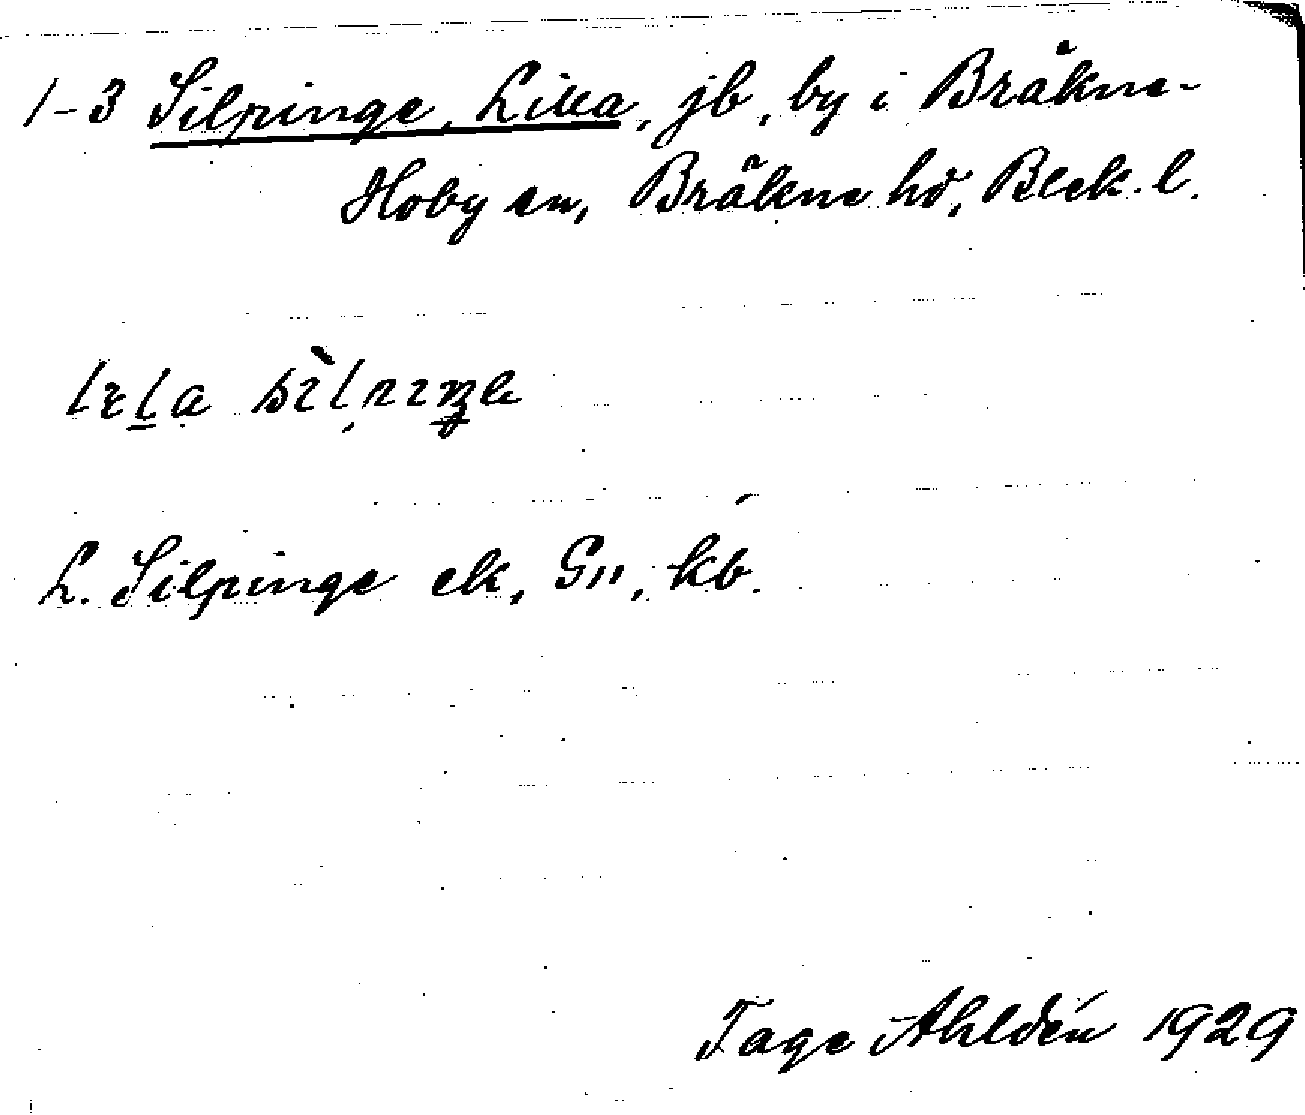 1-3 Silpinge, Lilla, jb, by i Bräkne-
Hoby sn, Bräkne hd, Blek. l.
L. Silpinge ek, Gn, kb.
Tage Ahldén 1929